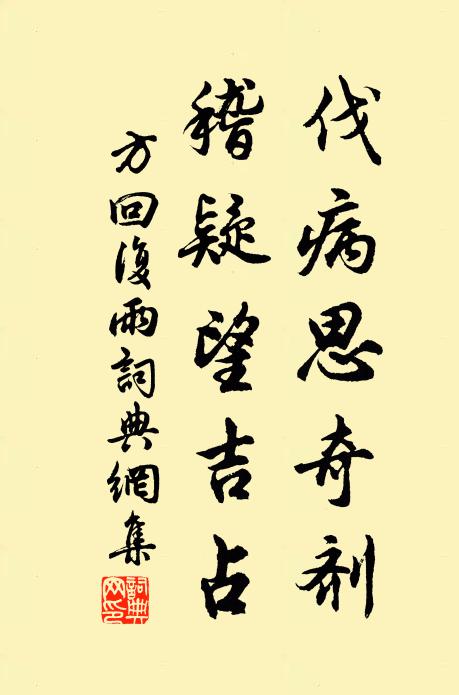 伐病思奇劑
稽疑望吉占
方回復雨詞典網集
詞典网印